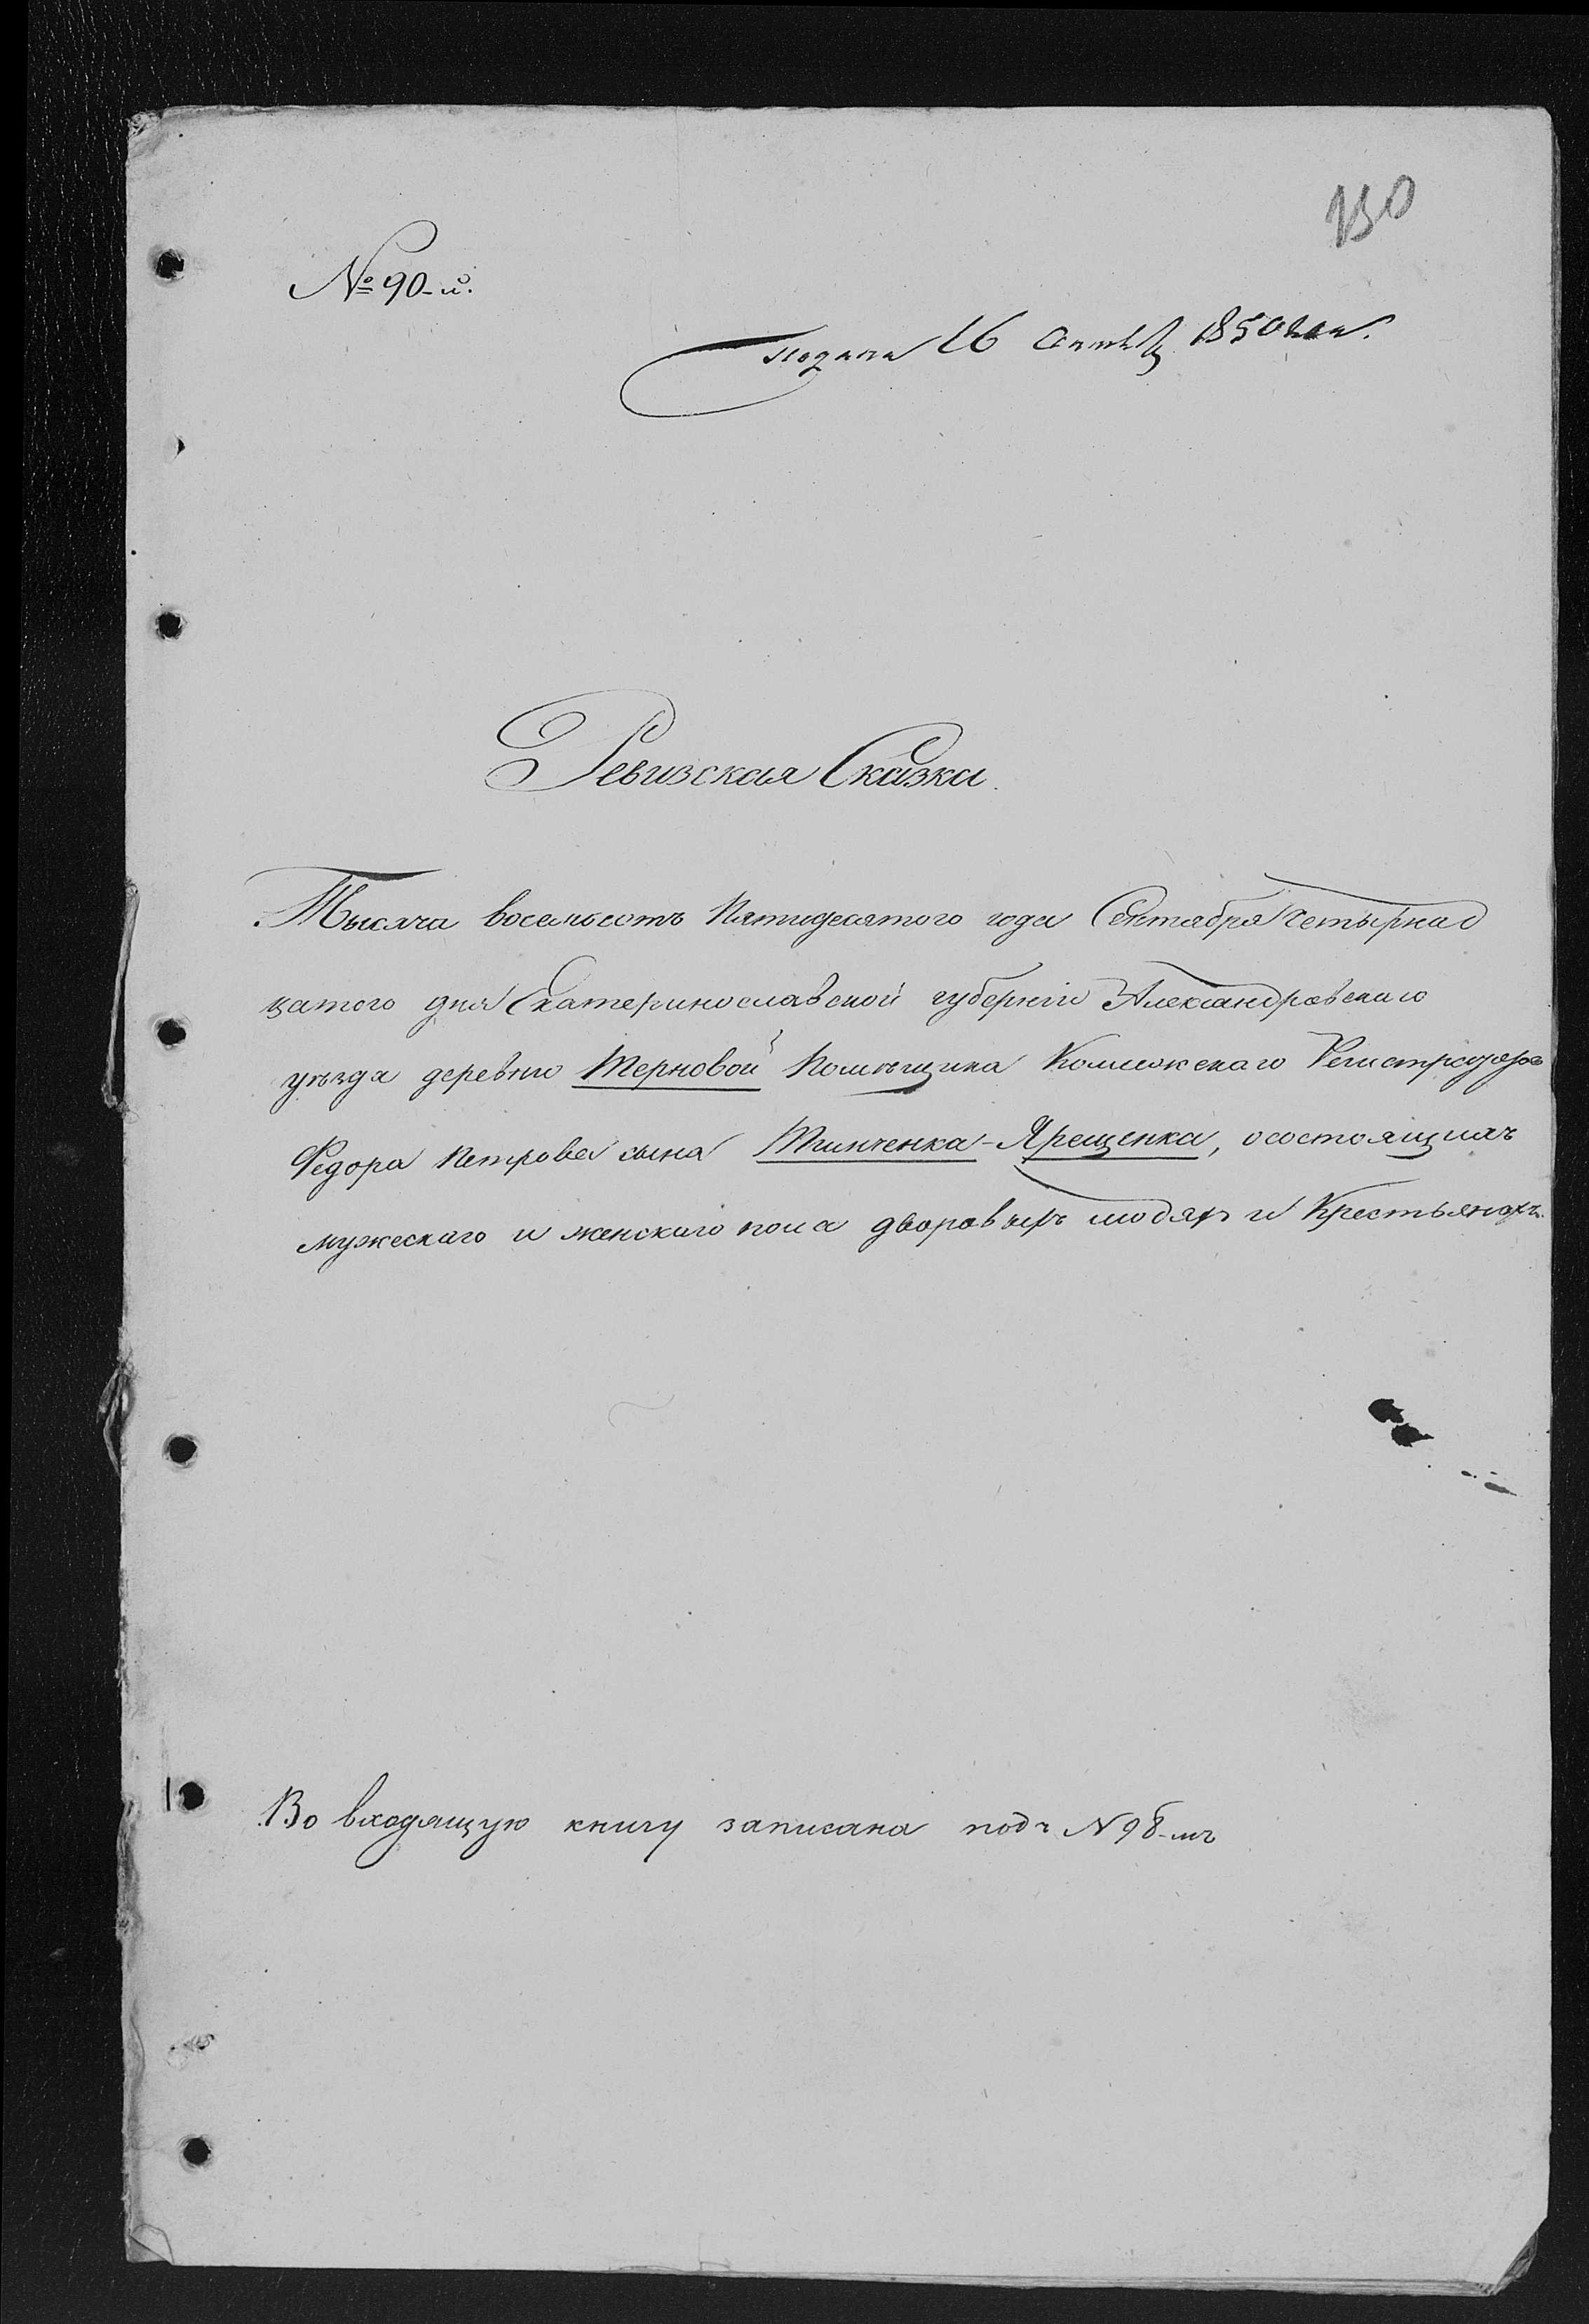 130
№ 90-й.
подана 16 Октяб 1850 года.
Ревизская Сказка.
Тысяча восемьсотъ Пятидесятого года Сентября четырнад
цатого дня Екатеринославской губерніи Александровскаго
уѣзда деревни Терновой Помѣщика Коллежскаго Регистратора
Федора Петрова сына Тимченка-Ярещенка, о состоящихъ
мужескаго и женскаго пола дворовыхъ людяхъ и Крестьянахъ.
Во входящую книгу записана подъ № 98-мъ